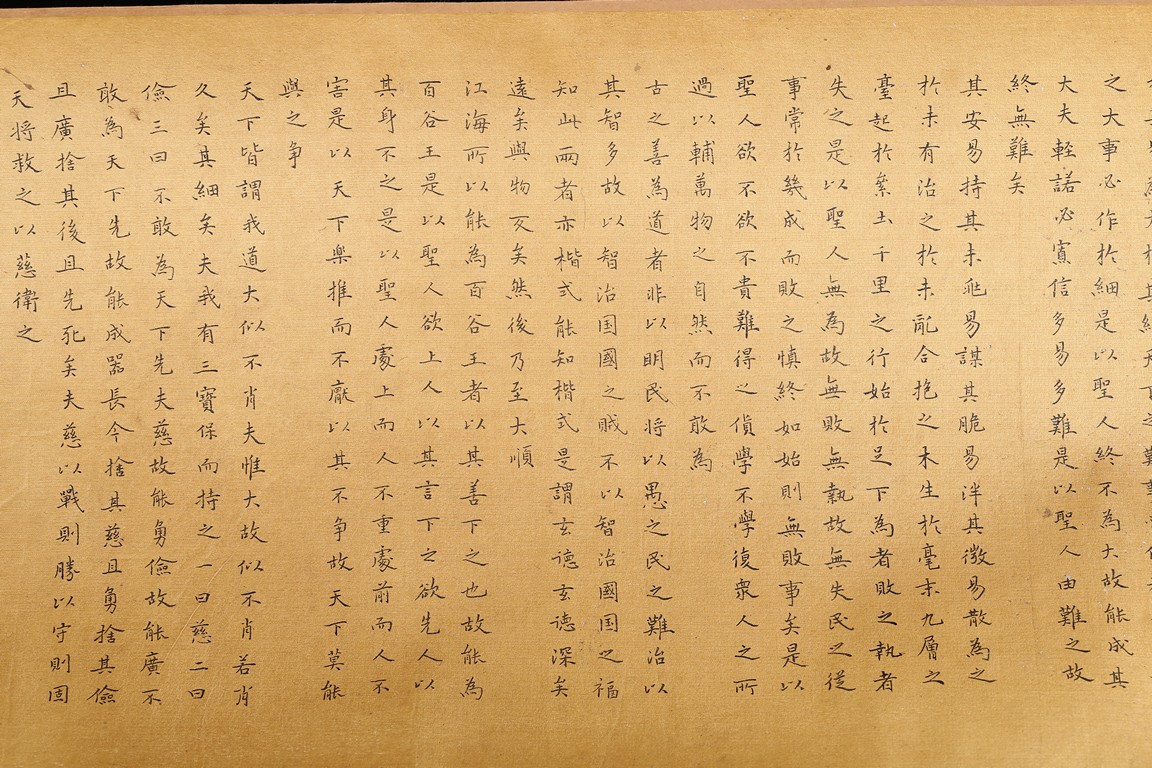 大於其細天下之難事
之大事必作於細是以聖人終不為大故能成其
大夫輕諾必寡信多易多難是以聖人由難之故
終無難矣
其安易持其未兆易謀其脆易泮其微易散為之
於未有治之於未亂合抱之木生於毫末九層之
臺起於絫土千里之行始於足下為者敗之執者
失之是以聖人無為故無敗無執故無失民之從
事常於幾成而敗之慎終如始則無敗事矣是以
聖人欲不欲不貴難得之貨學不學復眾人之所
過以輔萬物之自然而不敢為
古之善為道者非以明民將以愚之民之難治以
其智多故以智治国國之賊不以智治國国之福
知此兩者亦楷式能知楷式是謂玄德玄德深矣
遠矣與物反矣然後乃至大順
江海所以能為百谷王者以其善下之也故能為
百谷王是以聖人欲上人以其言下之欲先人以
其身不之是以聖人處上而人不重處前而人不
害是以天下樂推而不厭以其不争故天下莫能
與之争
天下皆謂我道大似不肖夫惟大故似不肖若肖
久矣其細矣夫我有三寶保而持之一曰慈二曰
儉三曰不敢為天下先夫慈故能勇儉故能廣不
敢為天下先故能成器長今捨其慈且勇捨其儉
且廣捨其後且先死矣夫慈以戰則勝以守則固
天將救之以慈衛之